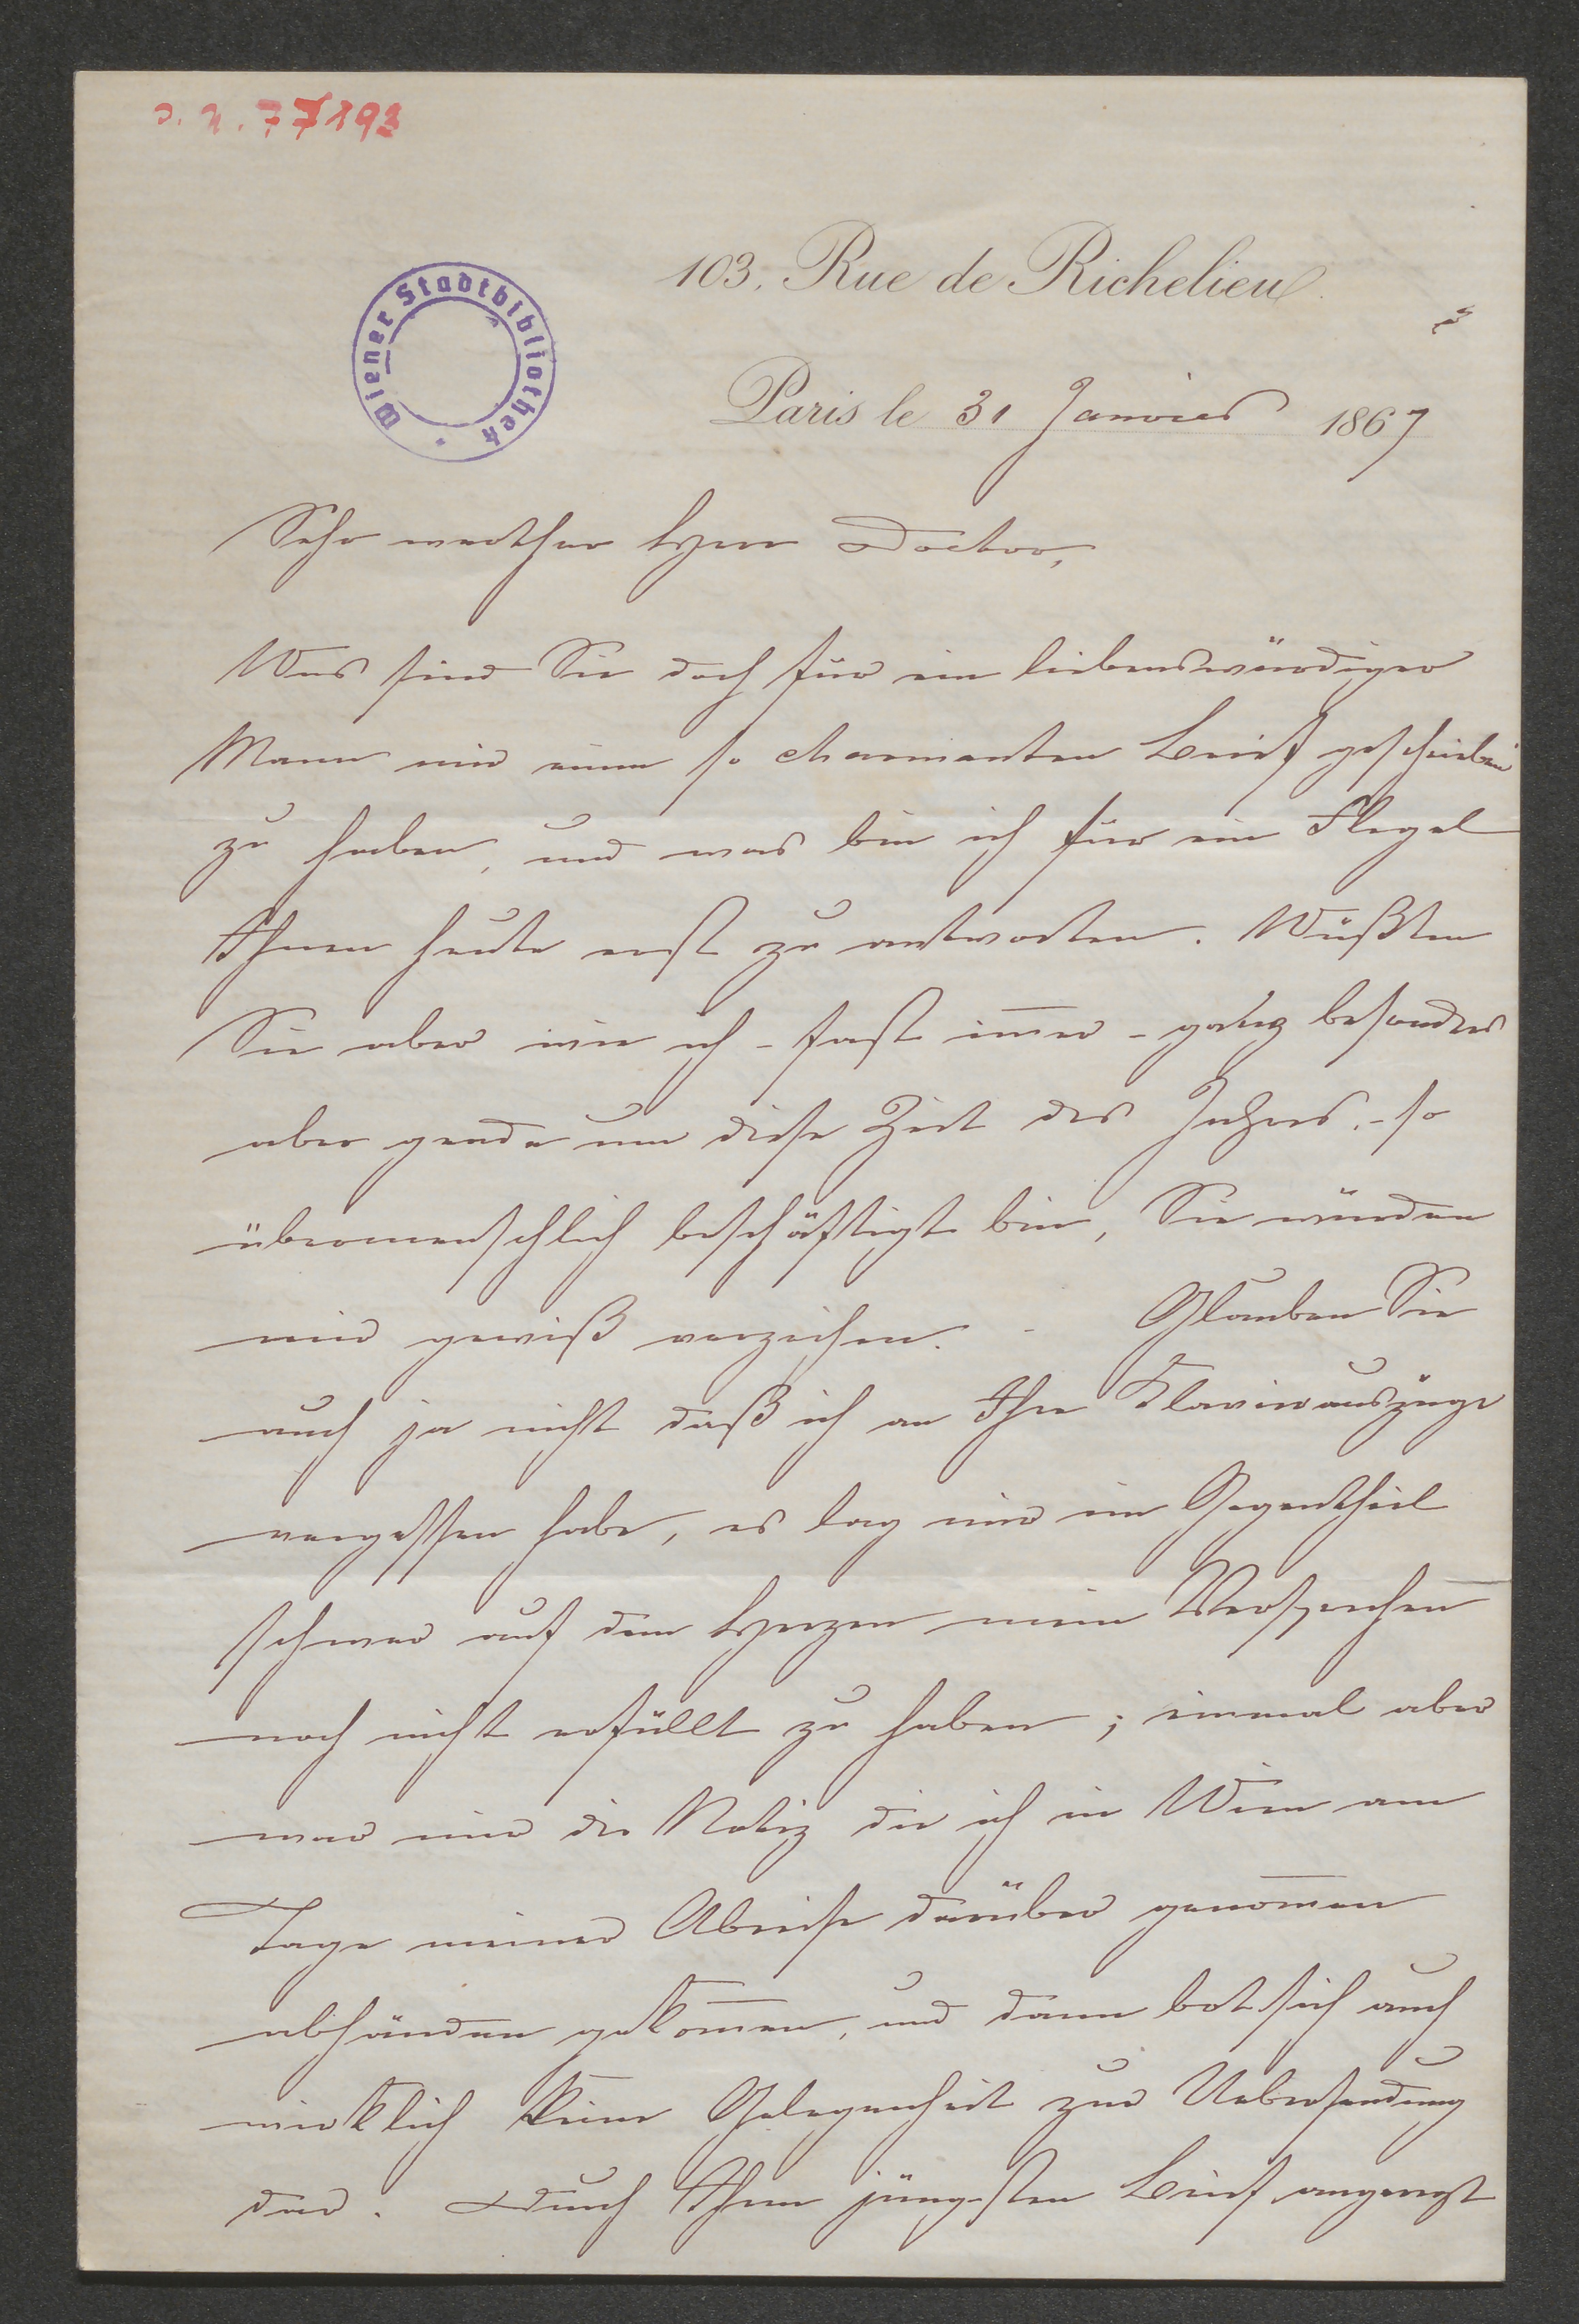 J. N. 77193
103, Rue de Richelieu
Wiener Stadtbibliothek
Paris le 31 Janvier 1867
Sehr werther Herr Doctor,
Was sind Sie doch für ein liebenswürdiger
Mann mir einen so charmanten Brief geschrieben
zu haben, und was bin ich für ein Flegel
Ihnen heute erst zu antworten. Wüßten
Sie aber wie ich - fast im̅er - ganz besonders
aber gerade um diese Zeit des Jahres, - so
übermenschlich beschäftigt bin, Sie würden
mir gewiß verzeihen. - Glauben Sie
auch ja nicht daß ich an Ihre Klavierauszüge
vergessen habe, es lag mir im Gegentheil
schwer auf dem Herzen mein Versprechen
noch nicht erfüllt zu haben; einmal aber
war mir die Notiz die ich in Wien am
Tage meiner Abreise darüber genom̅en
abhanden gekom̅en, und dann bot sich auch
wirklich keine Gelegenheit zur Uebersendung
dar. Durch Ihren jüngsten Brief angeregt